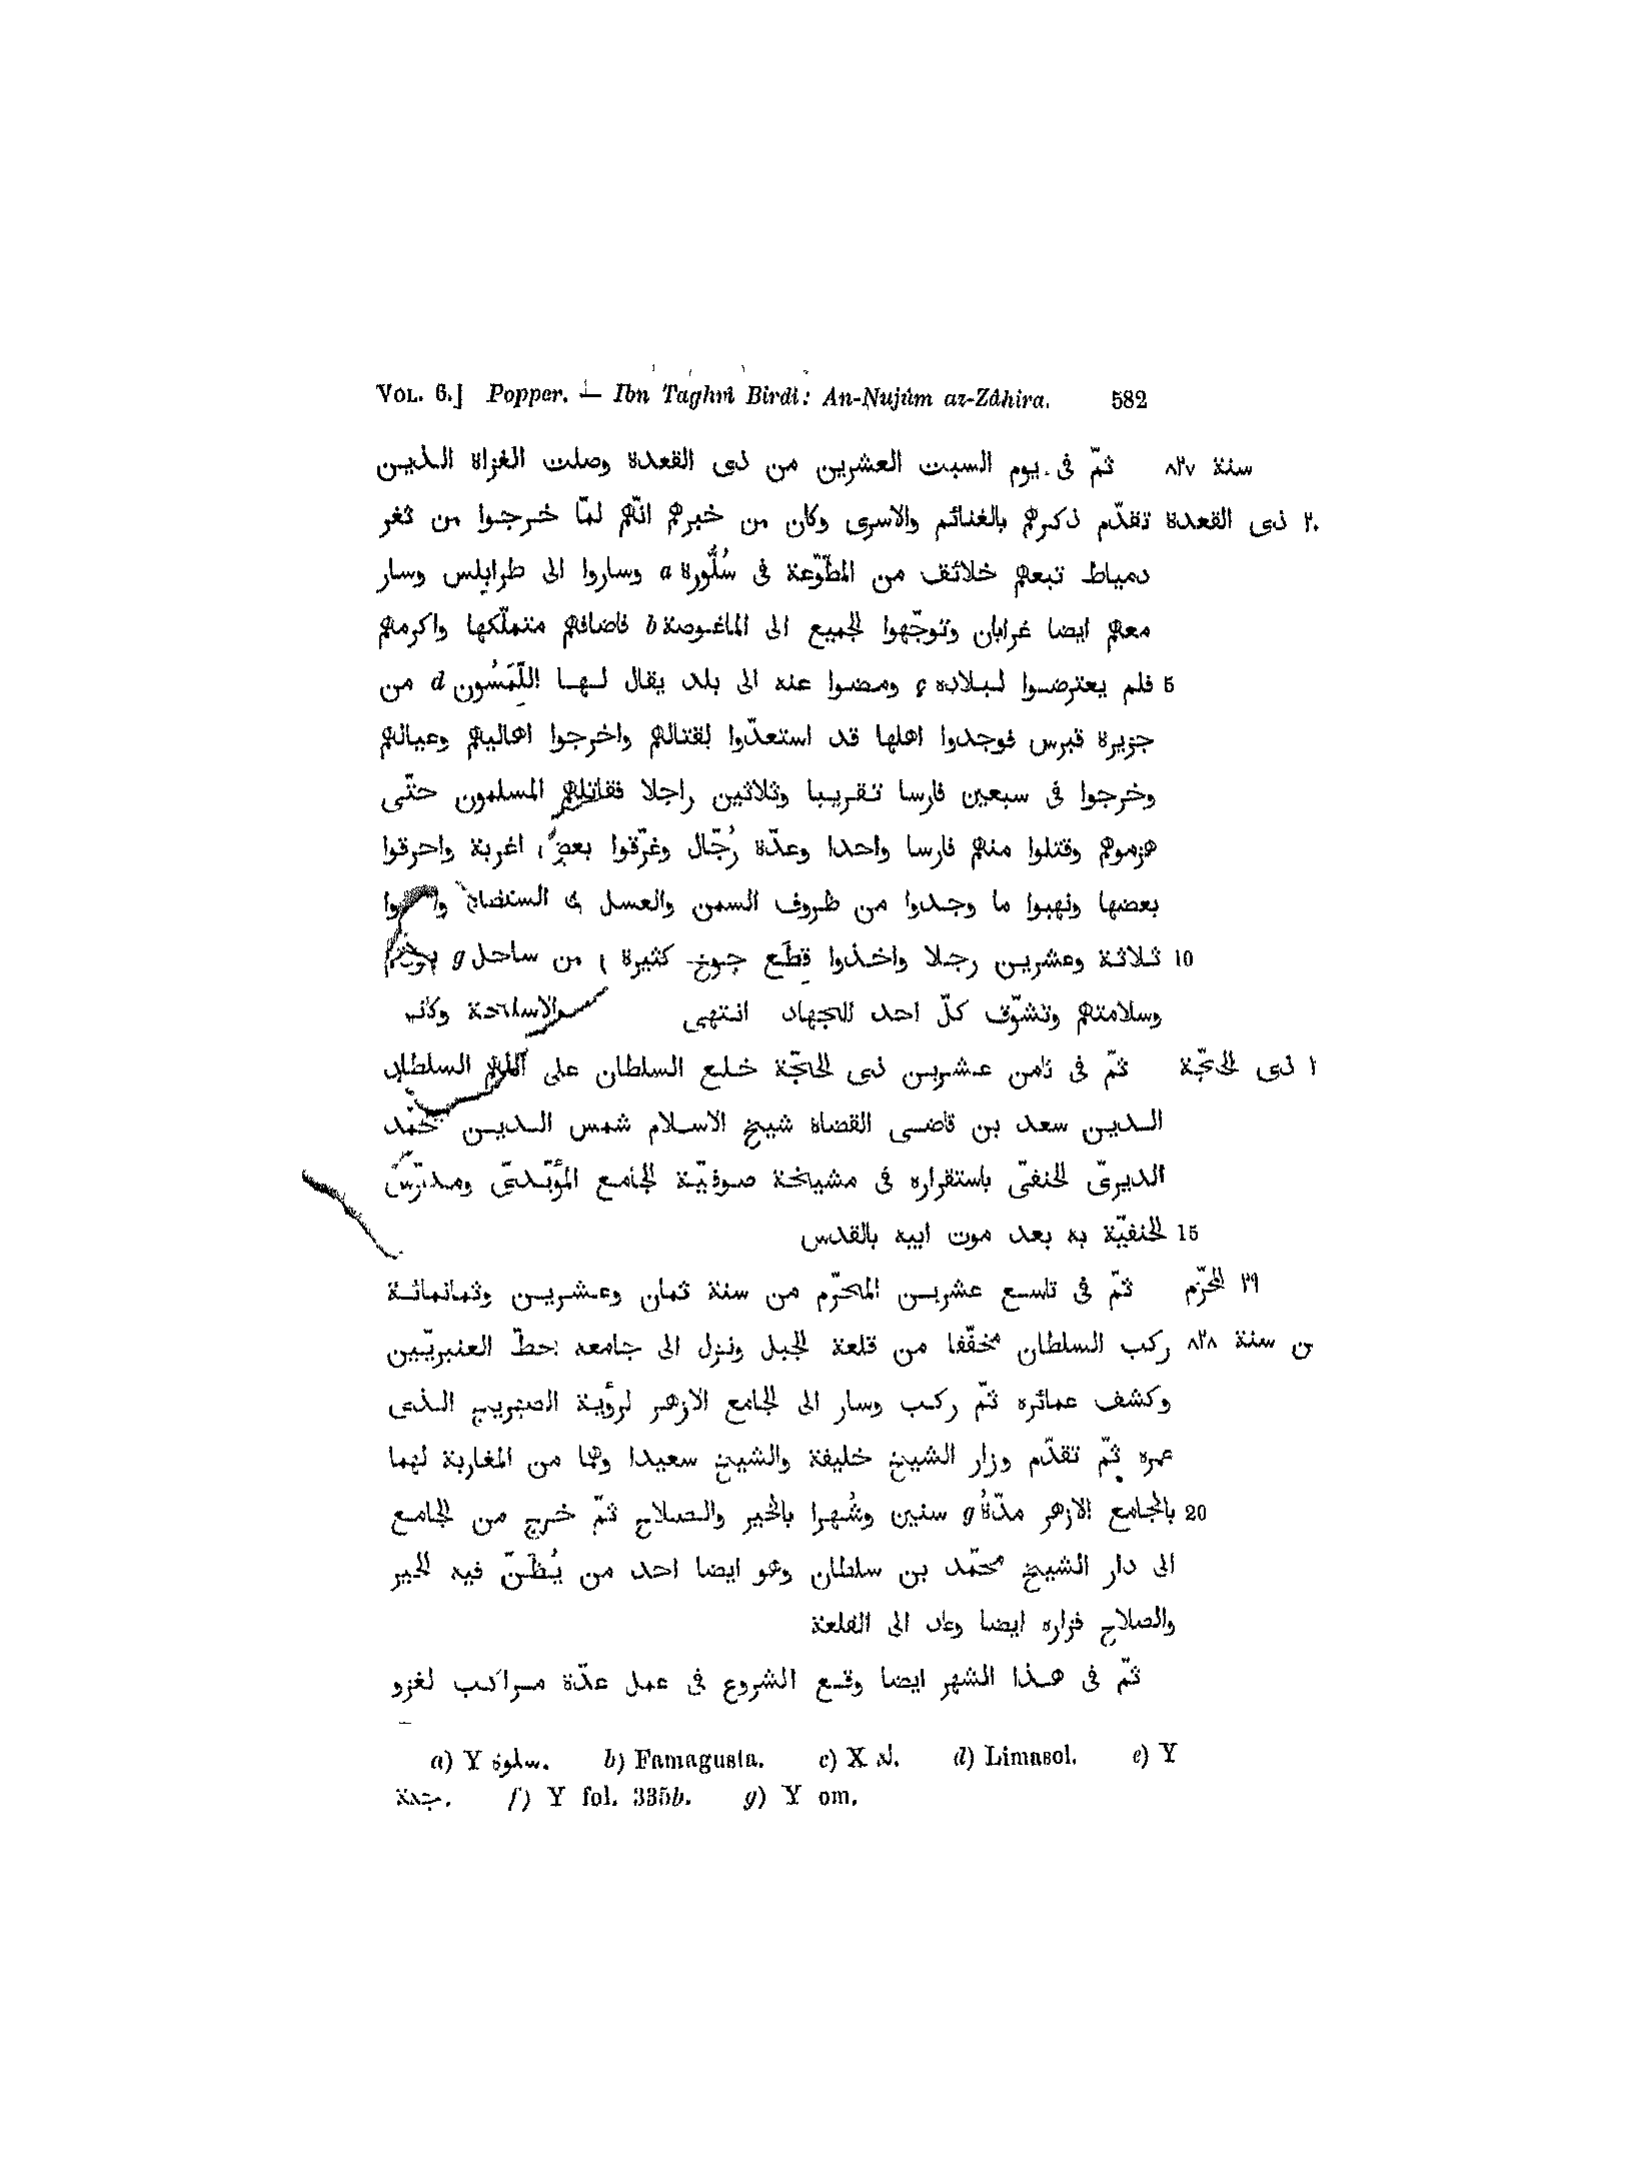 VOL. 6.] Popper. — Ibn Taghrî Birdî: An-Nujûm az-Zâhira. 582
سنة ٨٢٧ ثمّ فى يوم السبت العشرين من ذى القعدة وصلت الغزاة الذين
٢٠ ذى القعدة تقدّم ذكرهم بالغنائم والاسرى وكان من خبرهم انّهم لمّا خرجوا من ثغر
دمياط تبعهم خلائف من المطّوّعة فى سُلُّورة a وساروا الى طرابلس وسار
معهم ايضا غرابان وتوجّهوا الجميع الى الماغوصة b فاضافهم متملّكها واكرمهم
5 فلم يعترضوا لبلاده c ومضوا عنه الى بلد يقال لها اللّمَسُون d من
جزيرة قبرس فوجدوا اهلها قد استعدّوا لقتالهم واخرجوا اهاليهم وعيالهم
وخرجوا فى سبعين فارسا تقريبا وثلاثين راجلا فقاتلهم المسلمون حتّى
هزموهم وقتلوا منهم فارسا واحدا وعدّة رُجّال وغرّقوا اغربة واحرقوا
بعضها ونهبوا ما وجدوا من ظروف السمن والعسل
10 ثلاثة وعشرين رجلا واخذوا قِطَع جوخ كثيرة من ساحل g
وسلامتهم وتشوّف كلّ احد للجهاد انتهى والاسلحة
ذى الحجّة ثمّ فى ثامن عشرين ذى الحجّة خلع السلطان على السلطان
الدين سعد بن قاضى القضاة شيخ الاسلام شمس الدين محمّد
الديرىّ الحنفىّ باستقراره فى مشيخة صوفيّة الجامع المؤيّدىّ
15 الحنفيّة به بعد موت ابيه بالقدس
٢٩ المحرّم ثمّ فى تاسع عشرين المحرّم من سنة ثمان وعشرين وثمانمائة
ن سنة ٨٢٨ ركب السلطان مخفّفا من قلعة الجبل ونزل الى جامعه بخطّ العنبريّين
وكشف عمائره ثمّ ركب وسار الى الجامع الازهر لرؤية الصهريج الذى
عمره ثمّ تقدّم وزار الشيخ خليفة والشيخ سعيدا وهما من المغاربة لهما
20 بالجامع الازهر مدّةُ g سنين وشُهرا بالخير والصلاح ثمّ خرج من الجامع
الى دار الشيخ محمّد بن سلطان وهو ايضا احد من يُظَنّ فيه الخير
والصلاح فزاره ايضا وعاد الى القلعة
ثمّ فى هذا الشهر ايضا وقع الشروع فى عمل عدّة مراكب لغزو
a) Y سلورة. b) Famagusta. c) X له. d) Limasol. e) Y
f) Y fol. 335b. g) Y om.